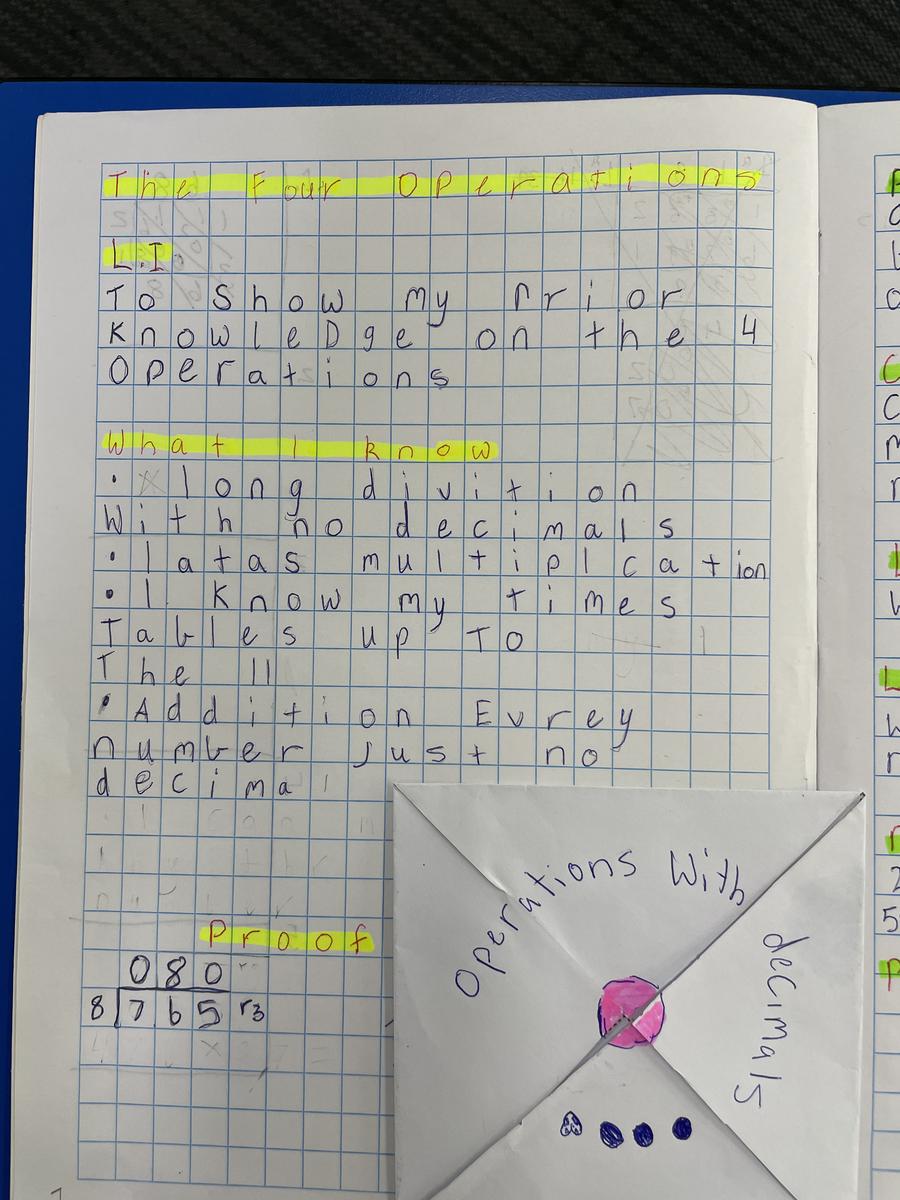 The Four Operations
L.I.
To Show my Prior
KnowleDge on the 4
Operations
What I know
• long divition
With no decimals
• latas multiplcation
• I Know my times
Tables up To
The 11
• Addition Evrey
number just no
decimal
Proof
080
8 765 r3
Operations With
decimals